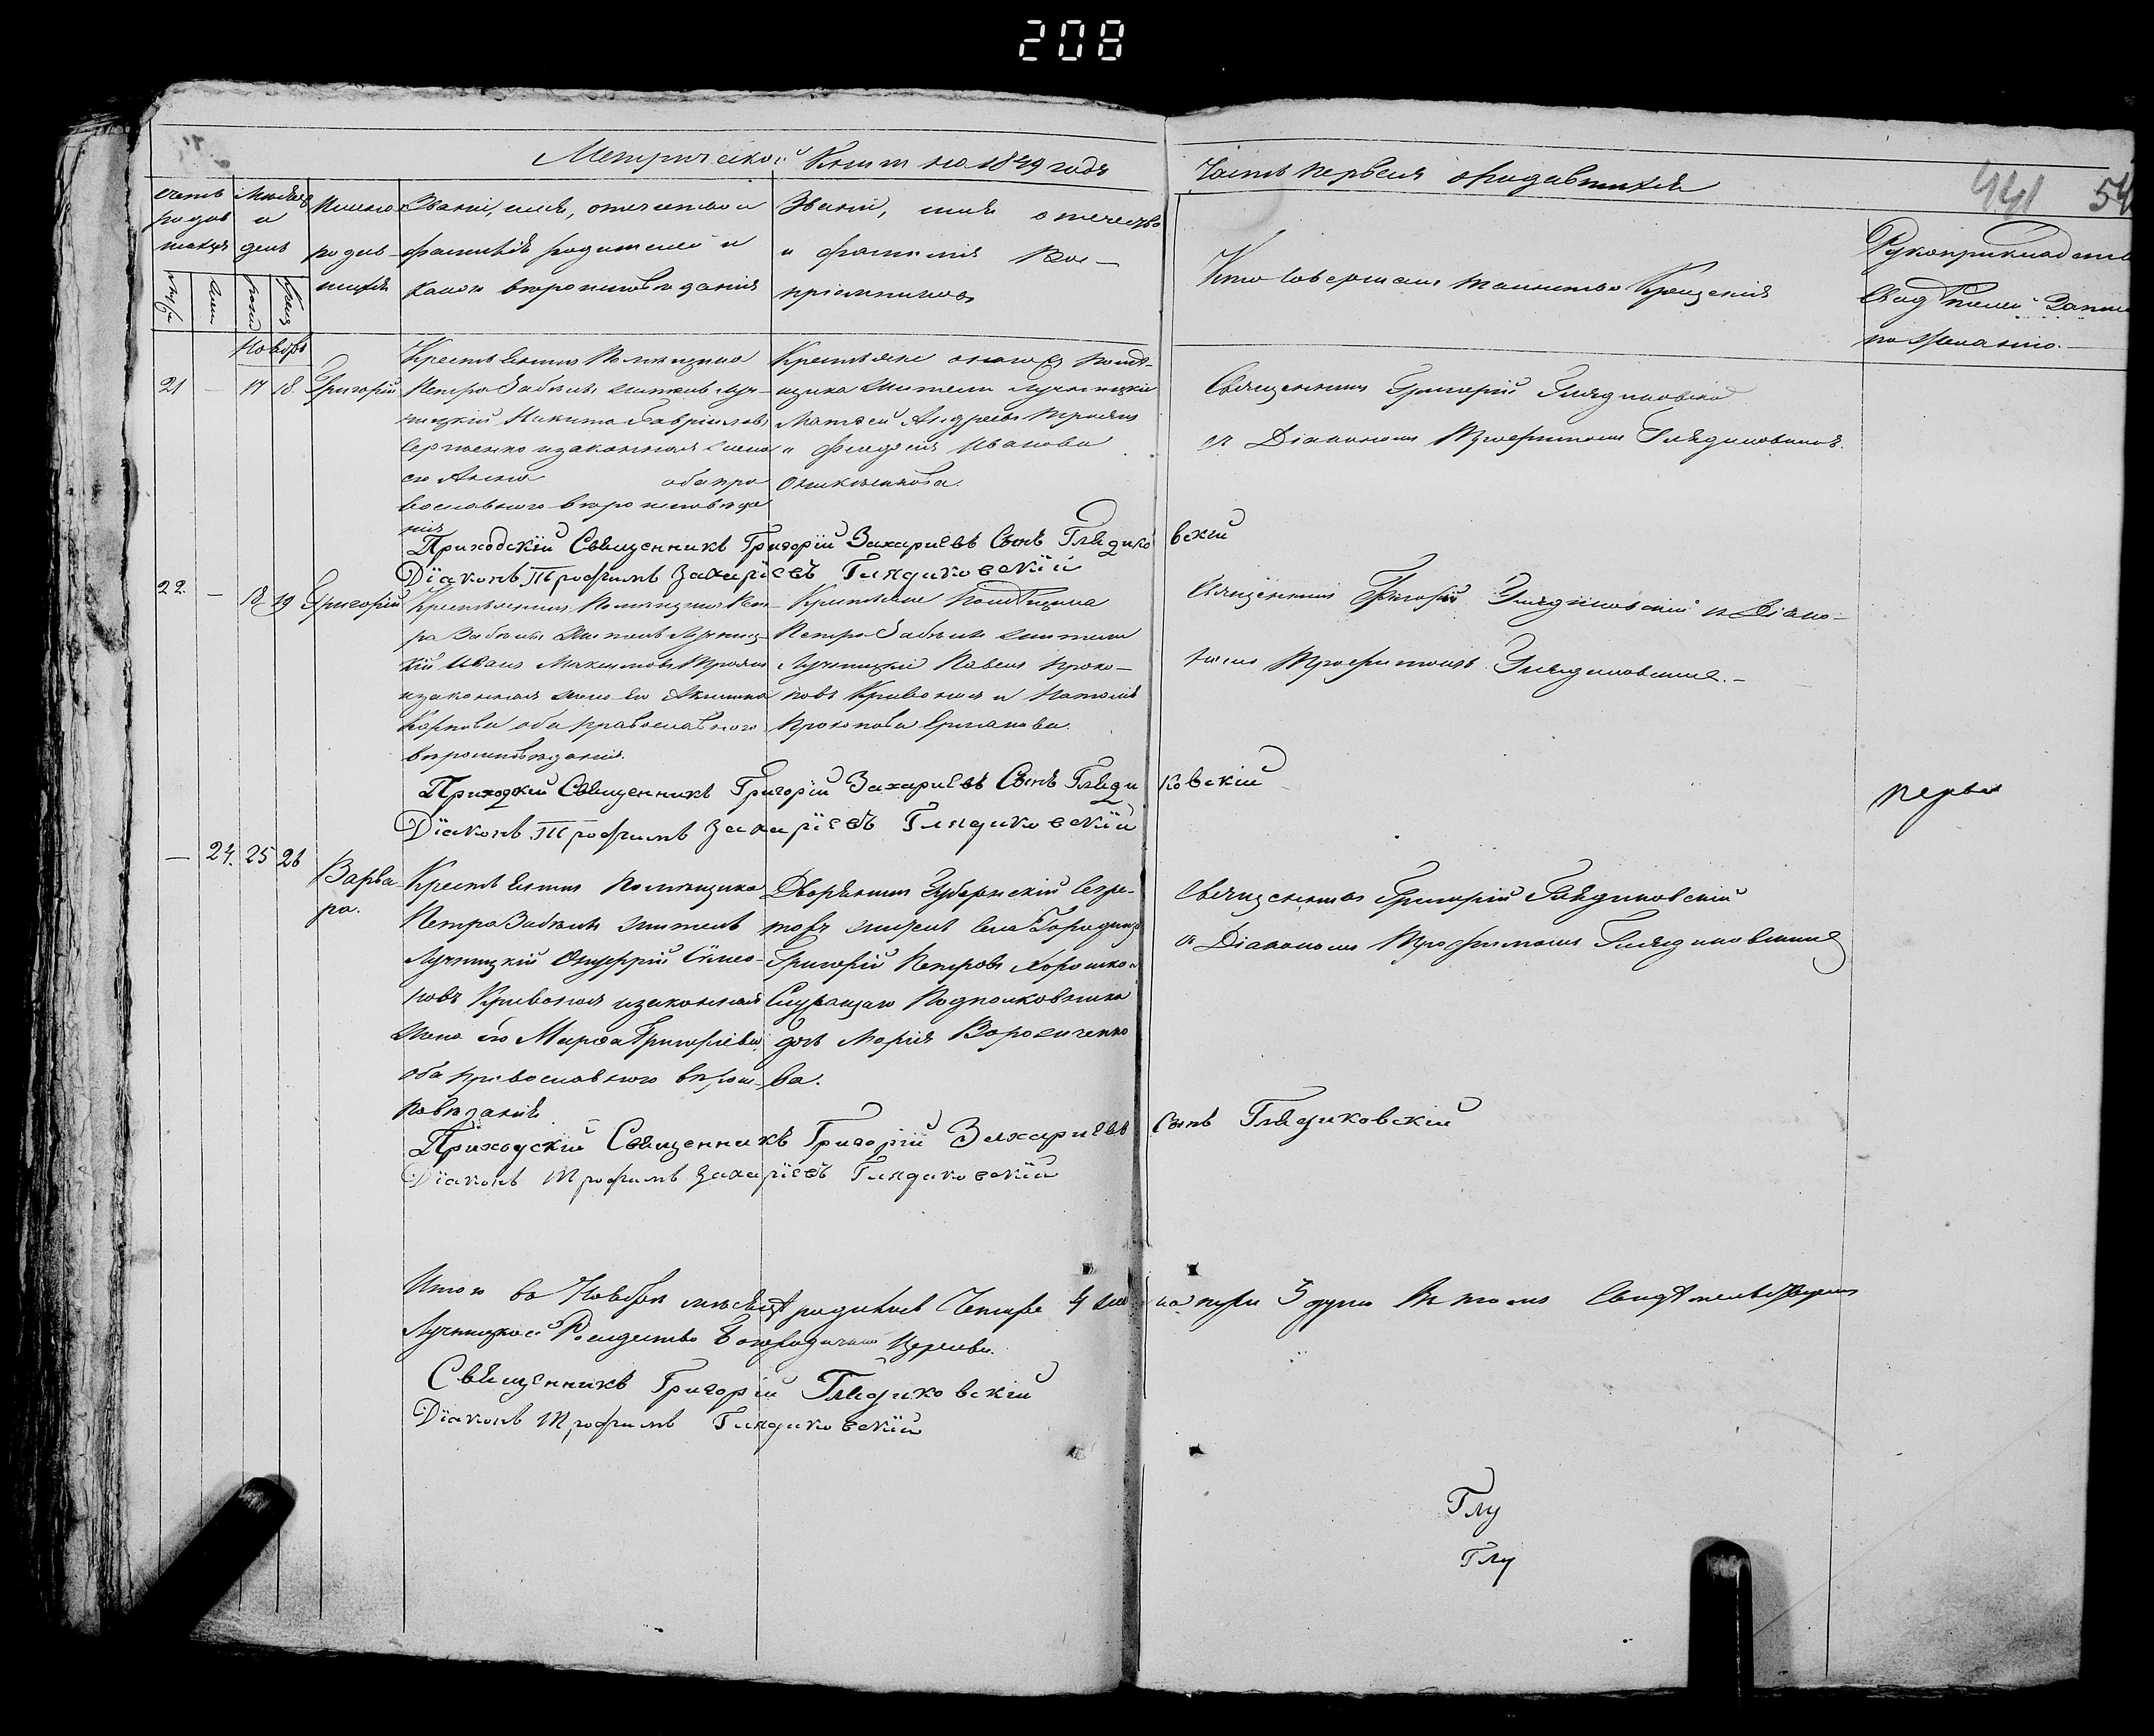 208
Метрической Книги на 1849 годъ
Часть первая о родившихся
441 54
Счетъ родив шихся
Месяцъ и день
Имена родив шихся
Званіе, имя, отечество и фамилія родителей и какого вероисповеданія
Званіе, имя отечество и фамилія Вос- пріемниковъ
Кто совершалъ таинство Крещенія
Рукоприкладство свидетелей записи по желанію.
рожд крещ
Ноябрь
21 — 17 18 Григорій
Крестьянинъ Помещика
Петра Забелы житель Луч-
ницкій Никита Гавріиловъ
Сергіенко и законная жена
его Анна оба пра
вославного вероисповеда
нія
Крестьяне оного помѣ-
щика жители Лучницкіи
Матфей Андреевъ Троянъ
и Феодосія Иванова
Священникъ Григорій Глядиковскій
съ Діакономъ Трофимомъ Глядиковскимъ.
Приходскій Священникъ Григорій Захаріевъ Сынъ Глядико вскій
Діаконъ Трофимъ Захаріевъ Глядиковскій
22 — 18 19 Григорій
Крестьянинъ Помещика Пет-
ра Забелы житель Лучниц-
кій Иванъ Максимовъ Троянъ
и законная жена его Акилина
Карпова оба православного
вероисповеданія.
Крестьяне Помещика
Петра Забелы жители
Лучницкіе Павелъ Проко-
повъ Кривоносъ и Наталія
Прокопова Ермакова.
Священникъ Григорій Глядиковскій съ Діако-
номъ Трофимомъ Глядиковскимъ.-
Приходскій Священникъ Григорій Захаріевъ Сынъ Гляди ковскій
Діаконъ Трофимъ Захаріевъ Глядиковскій
первая
— 24. 25 26 Варва-
ра.
Крестьянинъ Помещика
Петра Забелы житель
Лучницкій Онуфрій Симео-
новъ Кривоносъ и законная
жена его Марфа Григоріева
оба православного вероис-
поведанія
Дворянинъ Губернскій Секре-
таръ житель села Городища
Григорій Петровъ Хорошко и
Служащаго Подполковника
дочь Марія
ва.
Священникъ Григорій Глядиковскій
съ Діакономъ Трофимомъ Глядиковскимъ
Приходскій Священникъ Григорій Захаріевъ Сынъ Глядиковскій
Діаконъ Трофимъ Захаріевъ Глядиковскій
Итого въ Ноябре месяце родилось Четыре 4 Въ томъ Свидетельствуемъ
Лучницкой Рождество Богородичной Церкви.
Священникъ Григорій Глядиковскій
Діаконъ Трофимъ Глядиковскій
Глу
Глу